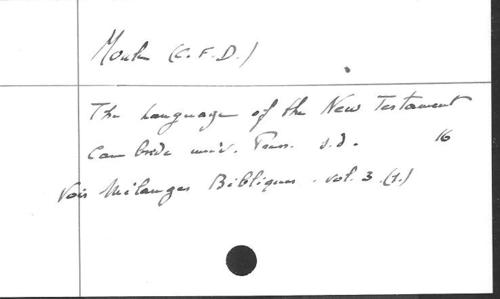 Moule (C.F.D.)
The Language of the New Testament
Cambridge univ. Press. s.d. 16
Voir Mélanges Bibliques. vol. 3.(1.)